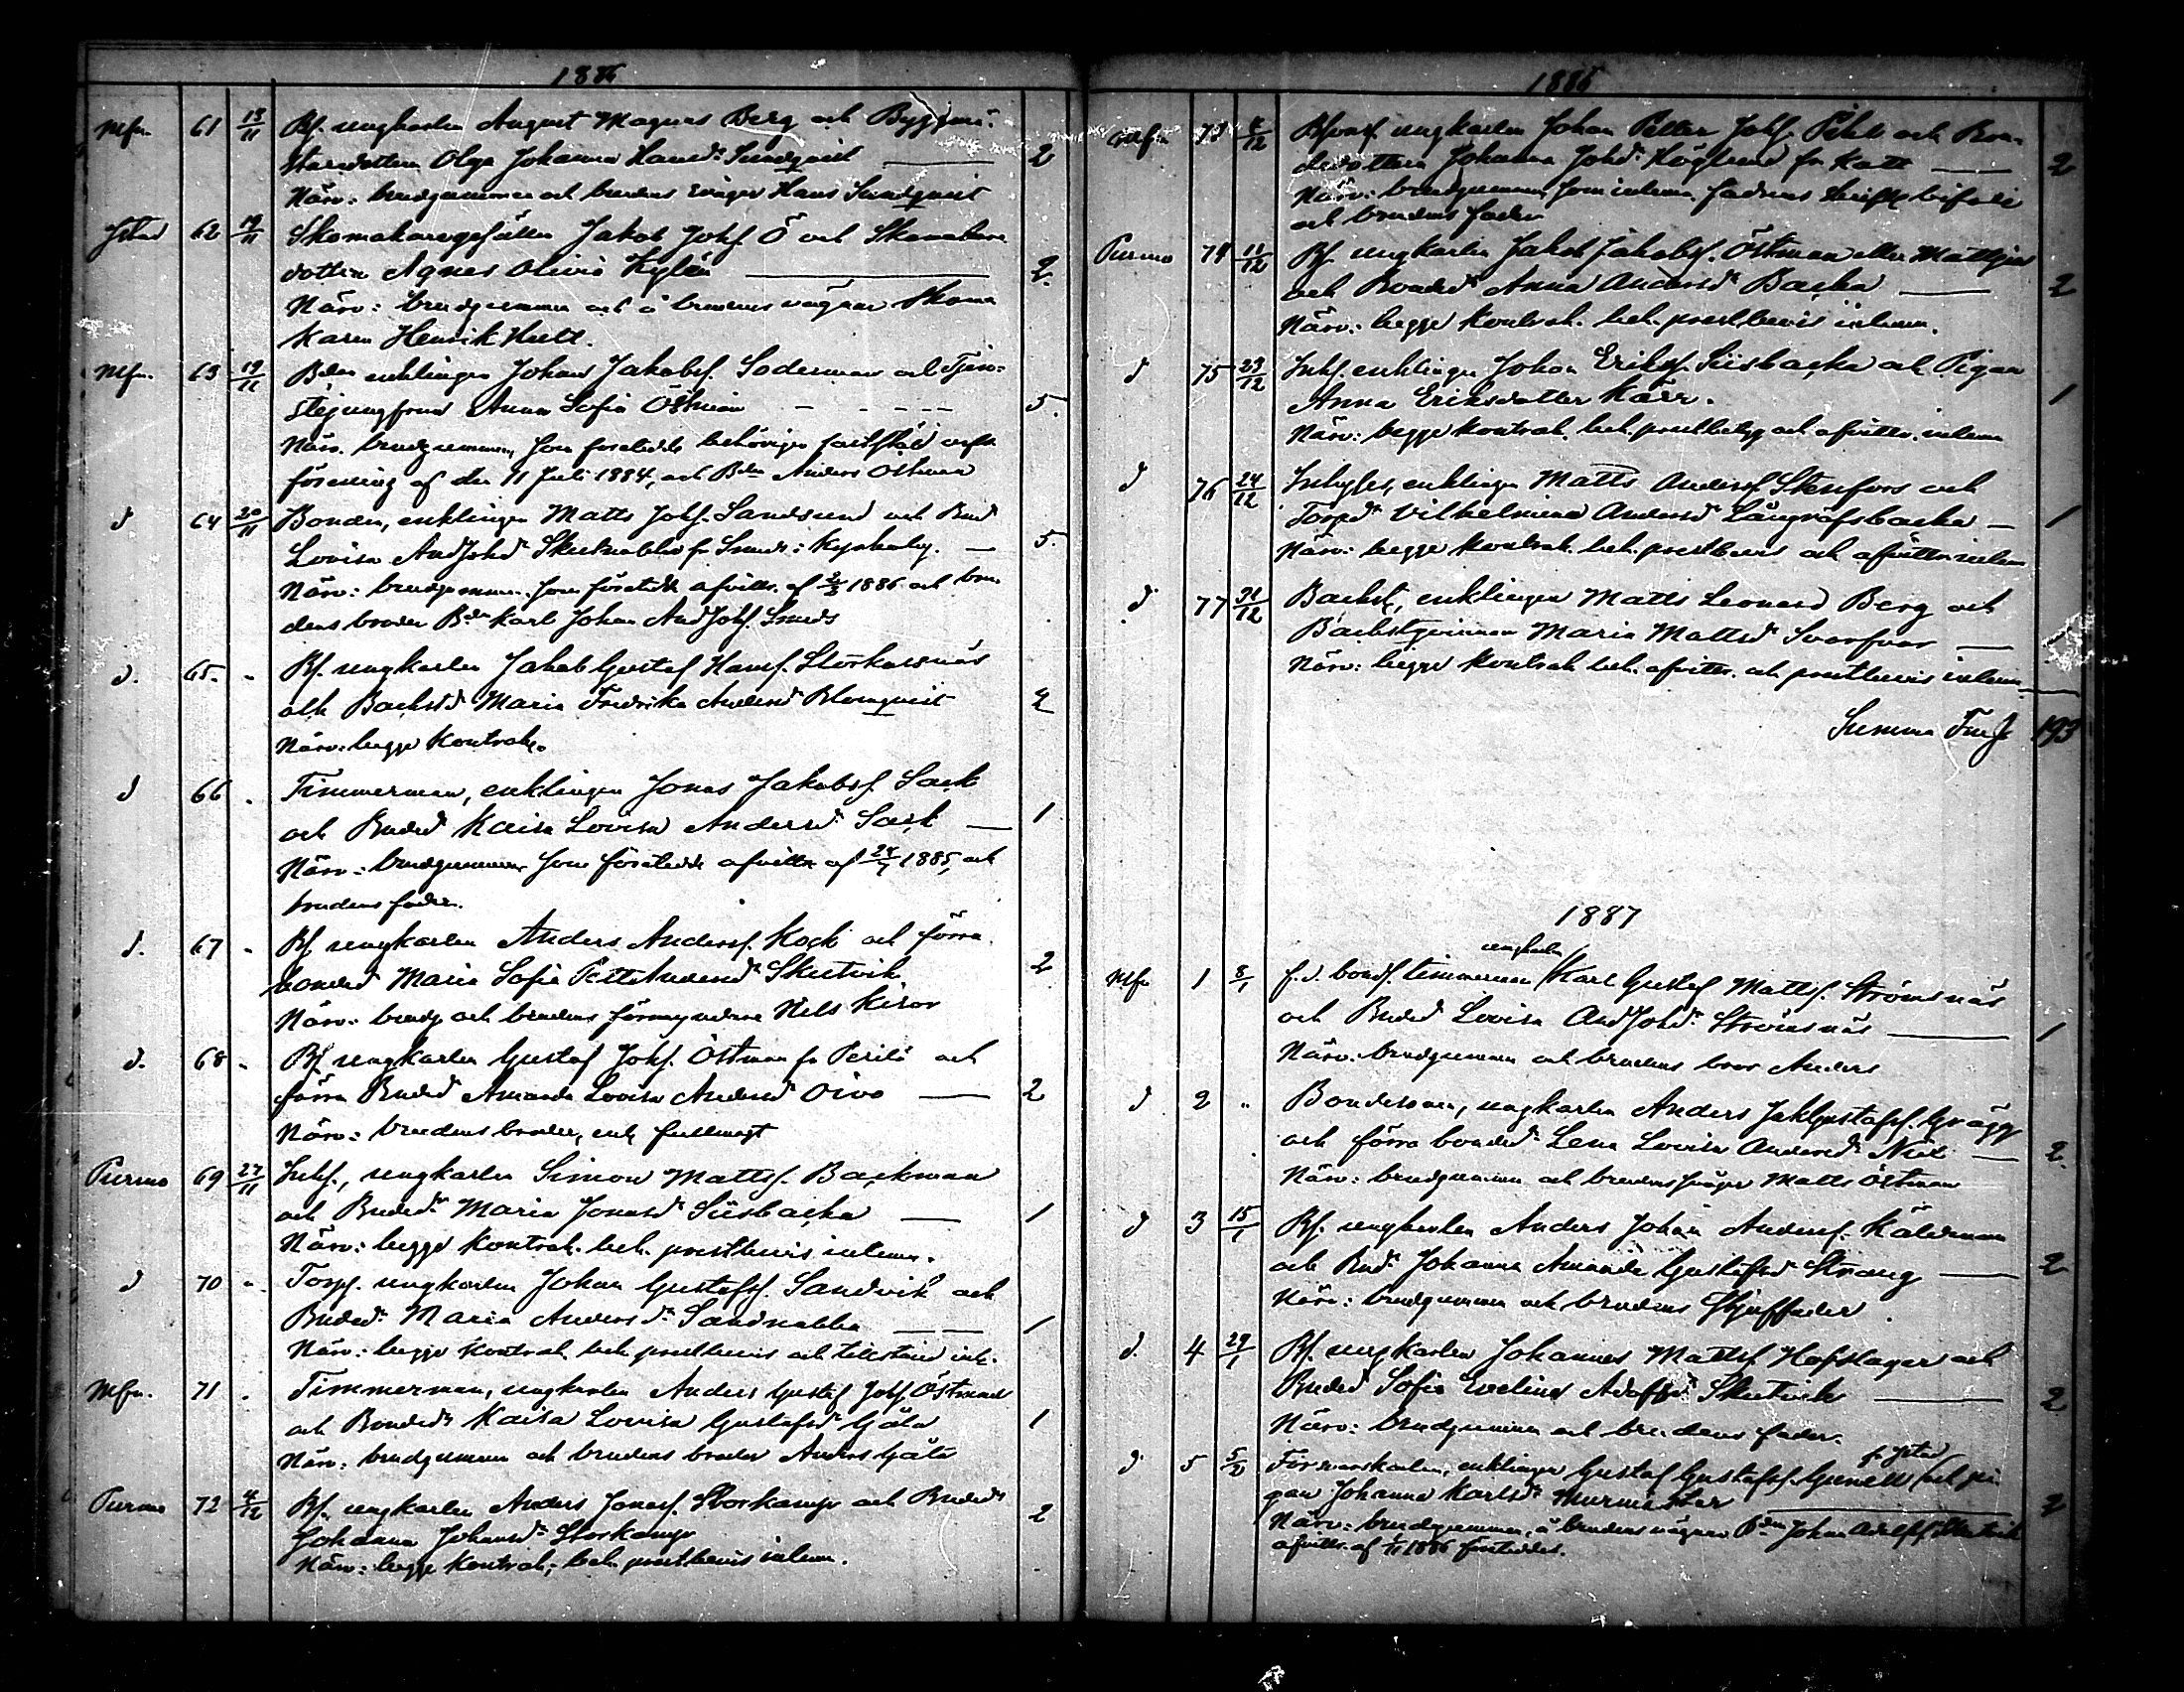 1886
Mfn. 61 13/11 Bs. ungkarlen August Magnus Berg och Byggmä-
staredottern Olga Johanna Hansdr Sundqvist 2
Närv: brudgummen och brudens svåger Hans Sundqvist
Jstad 62 19/11 Skomakaregesällen Jakob Johs. Ö och Skomakare
dottern Agnes Olivia Kylén 2.
Närv: brudgummen och å brudens vägnar Skoma
karen Henrik
Mfn. 63 19/11 Bden enklingen Johan Jakobss. Söderman och Tjen-
stejungfrun Anna Sofia Östman 5.
Närv. brudgummen, som företedde behörigen fastställd
förening af den 11 Juli 1884, och Bden Anders Östman
d 64 20/11 Bonden, enklingen Matts Johs. Sandsund och Bond
Lovisa AndJohdr Skutnabba fr Smeds i Kyrkoby. 5.
Närv: brudgummen. som företedde afvittr. af 2/3 1886 och bru
dens broder Bden Karl Johan AndJohs. Smeds
d. 65. " Bs. ungkarlen Jakob Gustaf Hanss. Storkarsnäs
och Backstd Maria Fredrika Andersd Blomqvist 2
Närv: begge kontrah.
d 66 " Timmerman, enklingen Jonas Jakobss. Sack
och Bonded Kaisa Lovisa Andersdr Sack 1
Närv: brudgummen som företedde afvittr af 24/1 1885, och
brudens fader.
d. 67 " Bs ungkarlen Anders Anderss. Kock och förra
bonded Maria Sofia Andersdr Skutvik 2
Närv: brudg och brudens förmyndare Nils Kisor
d. 68 " Bs. ungkarlen Gustaf Johs. Östman fr Perilö och
förra Bonded Amanda Lovisa Andersd Oivo 2
Närv: brudens broder, enl fullmagt
Purmo 69 27/11 Inhs., ungkarlen Simon Mattss. Backman
och Bondedr Maria Jonasdr Siisbacka 1
Närv: begge kontrah. beh. prestbevis inlemn.
d 70 " Torps. ungkarlen Johan Gustafss. Sandvik och
Bondedr Maria Andersdr Sandnabba 1
Närv: begge kontrah. beh prestbevis och tillstånd inl.
Mfn. 71 " Timmerman, ungkarlen Anders Gustaf Johs. Östman
och Bondedr Kaisa Lovisa Gustafsdr Gäla 1
Närv: brudgummen och brudens broder Anders Gäla
Purmo 72 4/12 Bs. ungkarlen Anders Jonass. Storkamp och Bondedr
Johanna Johansdr Storkamp 2
Närv: begge kontrah; beh prestbevis inlemn.
1886
Mfn 73 4/12 ungkarlen Johan Petter Johs. Pihl och Bon-
dedottern Johanna Johdr Höglund fr Katt 2
Närv: brudgummen som inlemn. fadrens skriftl bifall
och brudens fader
Purmo 74 11/12 Bs. ungkarlen Jakob Jakobss. Östman eller Mattjus
och Bonded Anna Andersdr Backa 2
Närv: begge kontrah. beh. prestbevis inlemn.
d 75 23/12 Inhs. enklingen Johan Erikss. Siisbacka och Pigan
Anna Eriksdotter Kärr. 1
Närv: begge kontrah. beh. prestbetyg och afvittr. inlemn
d 76 24/12 Inhyses, enklingen Matts Anderss Stenfors och
Torpdr Vilhelmina Andersdr Långräfsbacka 1
Närv: begge kontrah. beh. prestbevis och afvittr. inlemn
d 77 31/12 Backst, enklingen Matts Leonard Berg och
Backstqvinnan Maria Mattsdr Svarfvar
Närv: begge kontrah beh. afvittr. och prestbevis inlemn
Summa Fmk 193
1887
ungkarlen
Mfn 1 8/1 f.d. bonds. timmerman Karl Gustaf Mattss. Strömsnäs
och Bonded Lovisa AndJohdr Strömsnäs 1
Närv. brudgummen och brudens bror Anders
d 2 " Bondesonen, ungkarlen Anders JakGustafss. Grägg
och förra bonded Lena Lovisa Andersdr Nix 2.
Närv: brudgummen och brudens svåger Matts Östman
d 3 15/1 Bs. ungkarlen Anders Johan Anderss. Källman
och Bondr Johanna Amanda Gustafsdr Strang 2
Närv: brudgummen och brudens styffader
d. 4 29/1 Bs. ungkarlen Johannes Mattss. Hofslagar och
Bonded Sofia Evelina Adolfsdr Skutnabb 2
Närv: brudgummen och brudens fader.
fr Jstad
d 5 5/2 Försvarskarlen, enklingen Gustaf Gustafss. Gunell och pi
gan Johanna Karlsdr Murmester 2
Närv: brudgummen, å brudens vägnar Bden Johan Adolfss Skutnabb
afvittr. af 1/11 1886 företeddes.